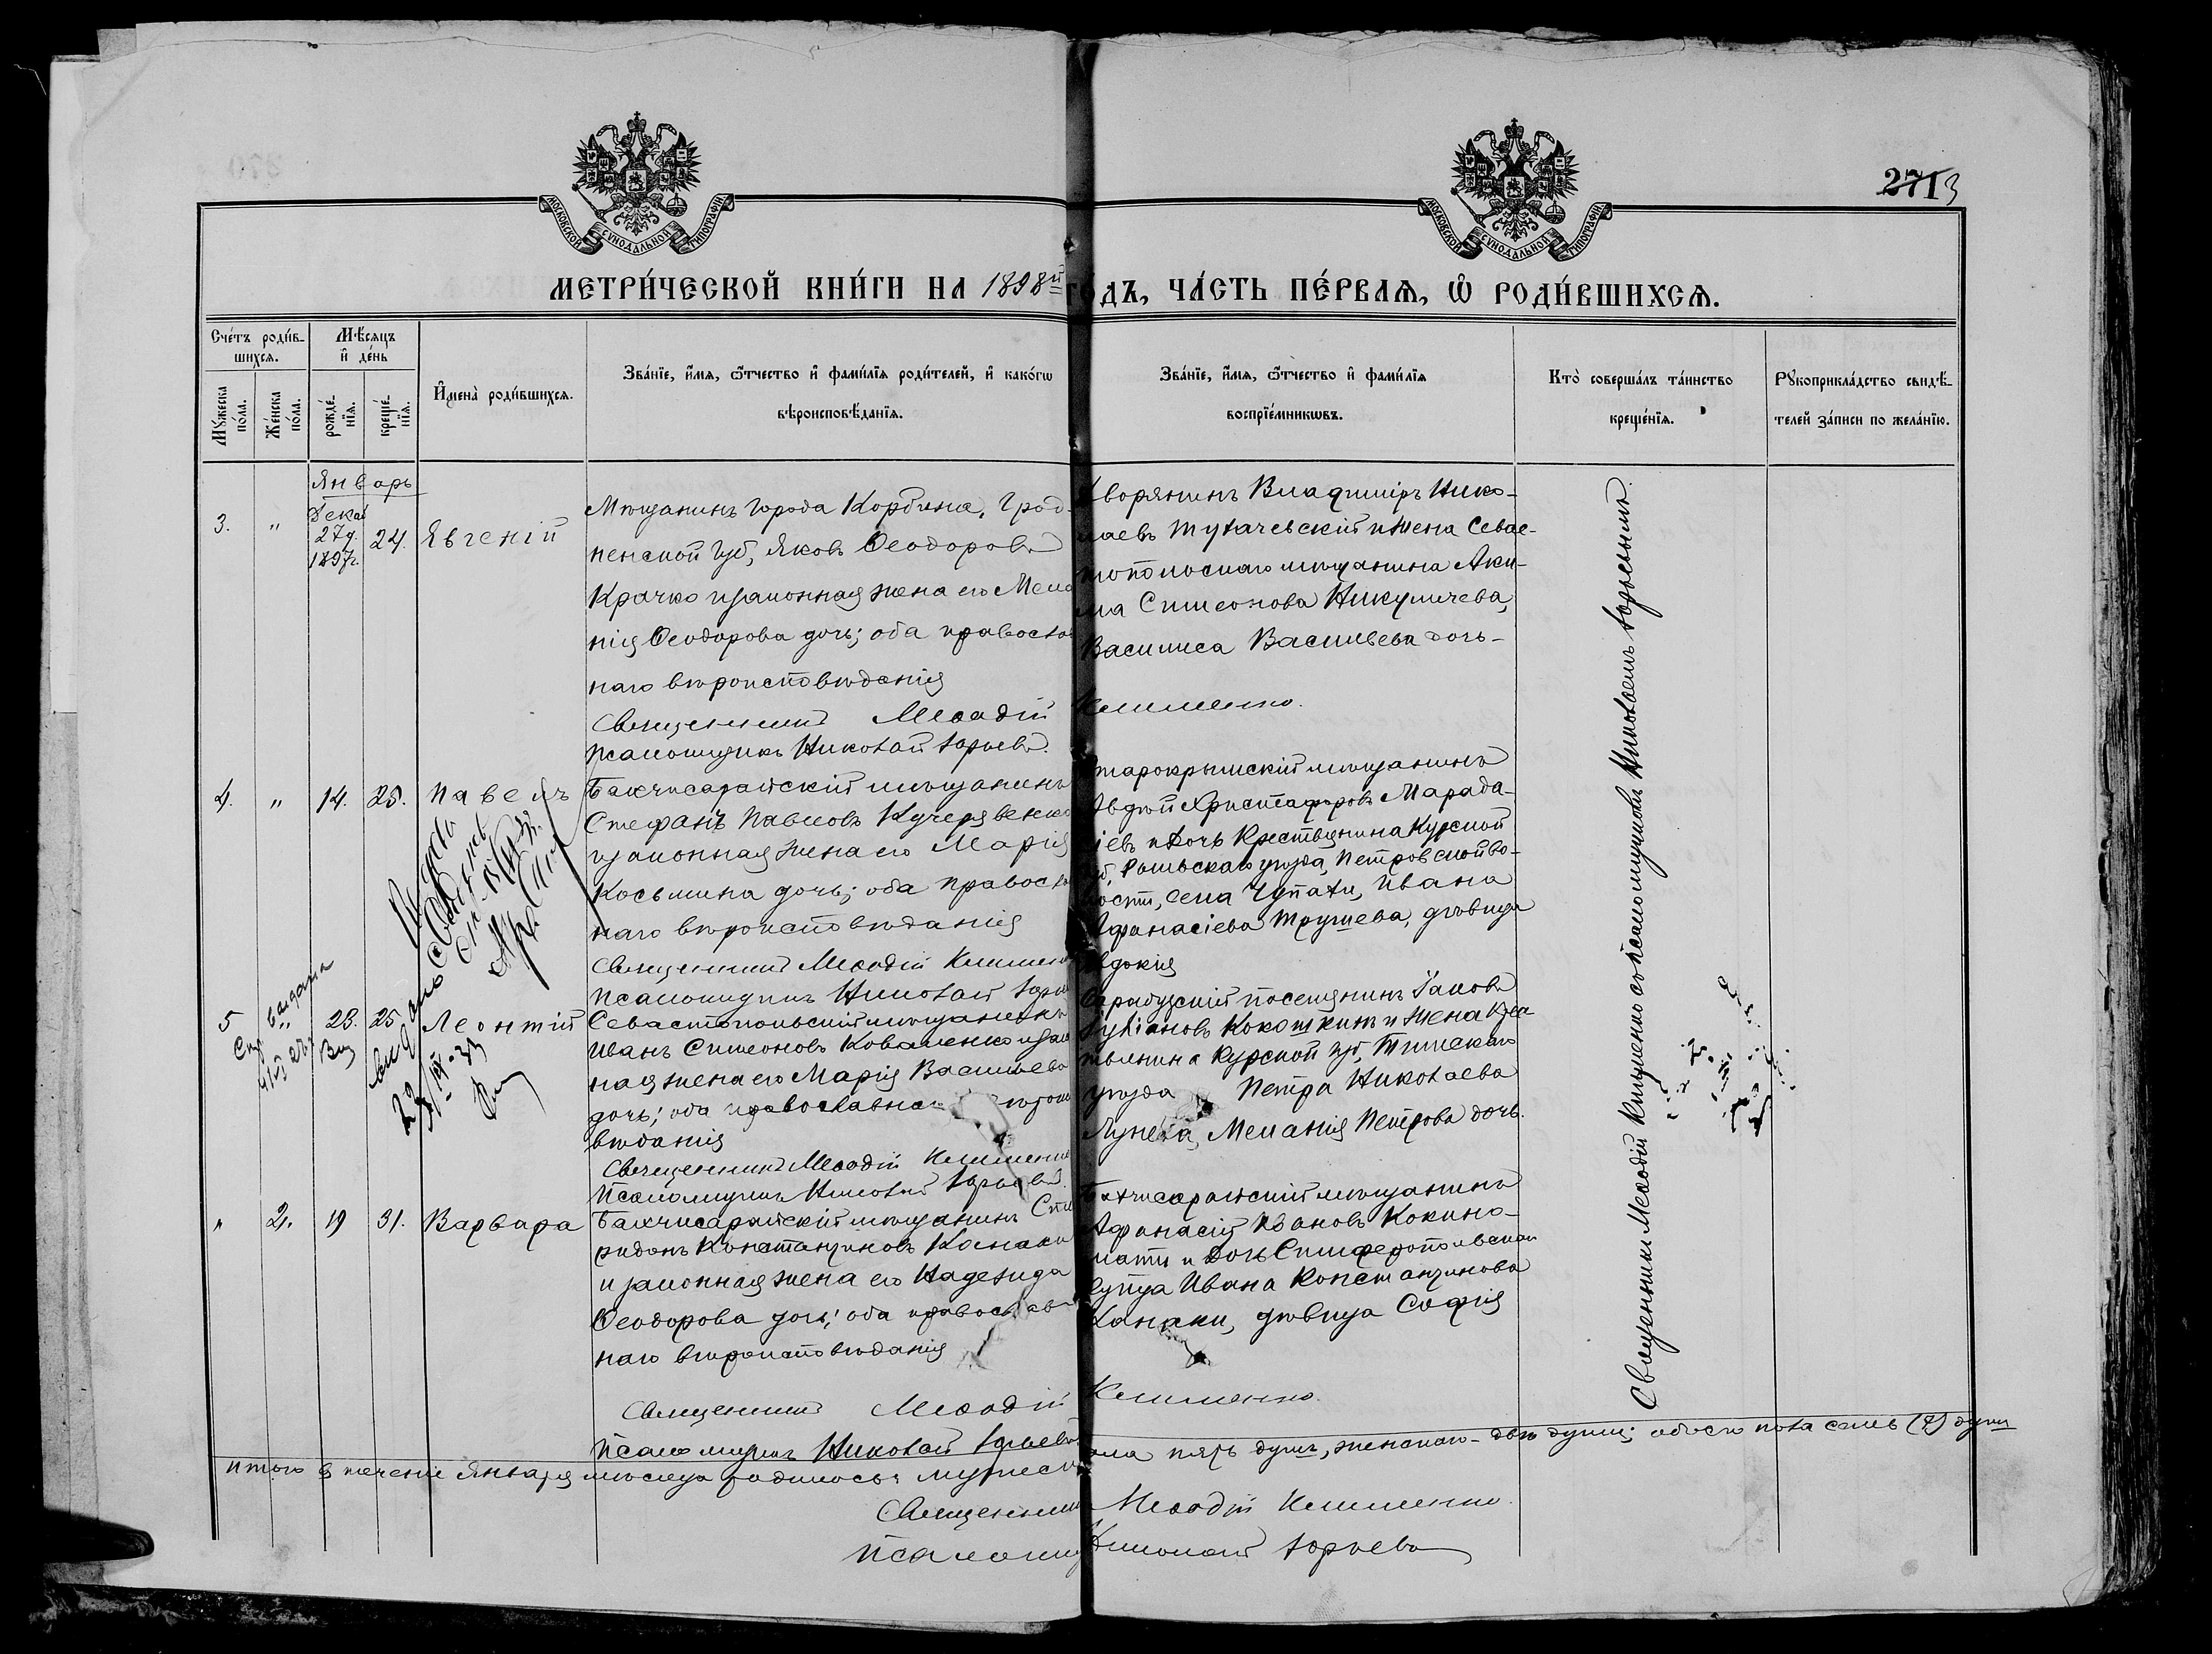 МОСКОВСКОЙ СѴНОДАЛЬНОЙ ТИПОГРАФІИ
МОСКОВСКОЙ СѴНОДАЛЬНОЙ ТИПОГРАФІИ
271 3
МЕТРИ́ЧЕСКОЙ КНИ́ГИ НА 1898й ГО́ДЪ, ЧА́СТЬ ПЕ́РВАѦ, Ѡ РОДИ́ВШИХСѦ.
Сче́тъ роди́в-
шихсѧ.
Мꙋ́жеска
по́ла.
Же́нска
по́ла.
Мѣ́сѧцъ
и҆ де́нь
рожде́-
нїѧ.
креще́-
нїѧ.
И҆мена̀ роди́вшихсѧ.
Зва́нїе, и҆́мѧ, ѻ҆́тчество и҆ фами́лїѧ роди́телей, и҆ како́гѡ
вѣроисповѣ́данїѧ.
Зва́нїе, и҆́мѧ, ѻ҆́тчество и҆ фами́лїѧ
воспрїе́мникѡвъ.
Кто̀ соверша́лъ та́инство
креще́нїѧ.
Рꙋкоприкла́дство свидѣ́-
телей за́писи по жела́нїю.
Январь
3.
"
Декаб
27д.
1897г.
24.
Евгеній
Мѣщанинъ города Кобрина, Грод-
ненской губ, Яковъ Ѳеодоровъ
Крачко и законная жена его Мела
нія Ѳеодорова дочь; оба православ
наго вѣроисповѣданія
Священникъ Меѳодій Клименко.
Псаломщикъ Николай Юрьевъ.
Дворянинъ Владиміръ Нико-
лаевъ Тухачевскій и жена Севас-
топольскаго мѣщанина Аки-
ма Симеонова Никуличева,
Василиса Васильева дочь-
4.
"
14.
25.
Павелъ
Бахчисарайскій мѣщанинъ
Стефанъ Павловъ Кучерявенко
и законная жена его Марія
Косьмина дочь; оба православ
наго вѣроисповѣданія
Священникъ Меѳодій Клименко
Псаломщикъ Николай Юрьев
Старокрымскій мѣщанинъ
Авдѣй Христофоровъ Марада-
іевъ и дочь крестьянина Курской
губ, Рыльскаго уѣзда, Петровской во-
лости, села Чупахи, Ивана
Афанасіева Трушева, дѣвица
Евдокія
5
"
23.
25
Леонтій
Севастопольскій мѣщанинъ
Иванъ Симеоновъ Коваленко и закон
ная жена его Марія Васильева
дочь; оба православнаго вѣроиспо
вѣданія
Священникъ Меѳодій Клименко
Псаломщикъ Николай Юрьевъ.
Сарабузскій поселянинъ Іаковъ
Іуліановъ Кокошкинъ и жена крес
тьянина Курской губ, Тимскаго
уѣзда Петра Николаева
Лунева, Меланія Петрова дочь.
"
2.
19
31.
Варвара
Бахчисарайскій мѣщанинъ Спи
ридонъ Константиновъ Канаки
и законная жена его Надежда
Ѳеодорова дочь; оба православ
наго вѣроисповѣданія
Священникъ Меѳодій Клименко.
Псаломщикъ Николай Юрьевъ
Бахчисарайскій мѣщанинъ
Афанасій Ивановъ Кокина-
лати и дочь Симферопольскаго
купца Ивана Константинова
Канаки, дѣвица Софія
Священникъ Меѳодій Клименко съ псаломщикомъ Николаемъ Юрьевымъ.
Итого въ теченіе Января мѣсяца родилось: мужеска пола пять душъ, женскаго - двѣ души; обоего пола семь (7) душъ
Священникъ Меѳодій Клименко.
Псаломщ Николай Юрьевъ